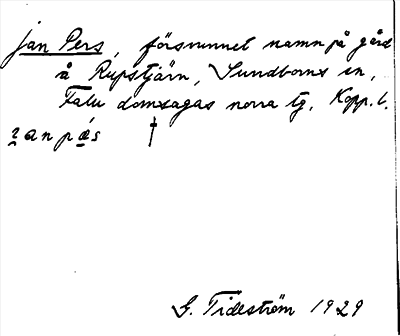 Jan Pers, försvunnet namn på gård
å Rupstjärn, Sundborns sn,
Falu domsagas norra tg, Kopp. l.
ɀanpa̱s †
G. Tideström 1929